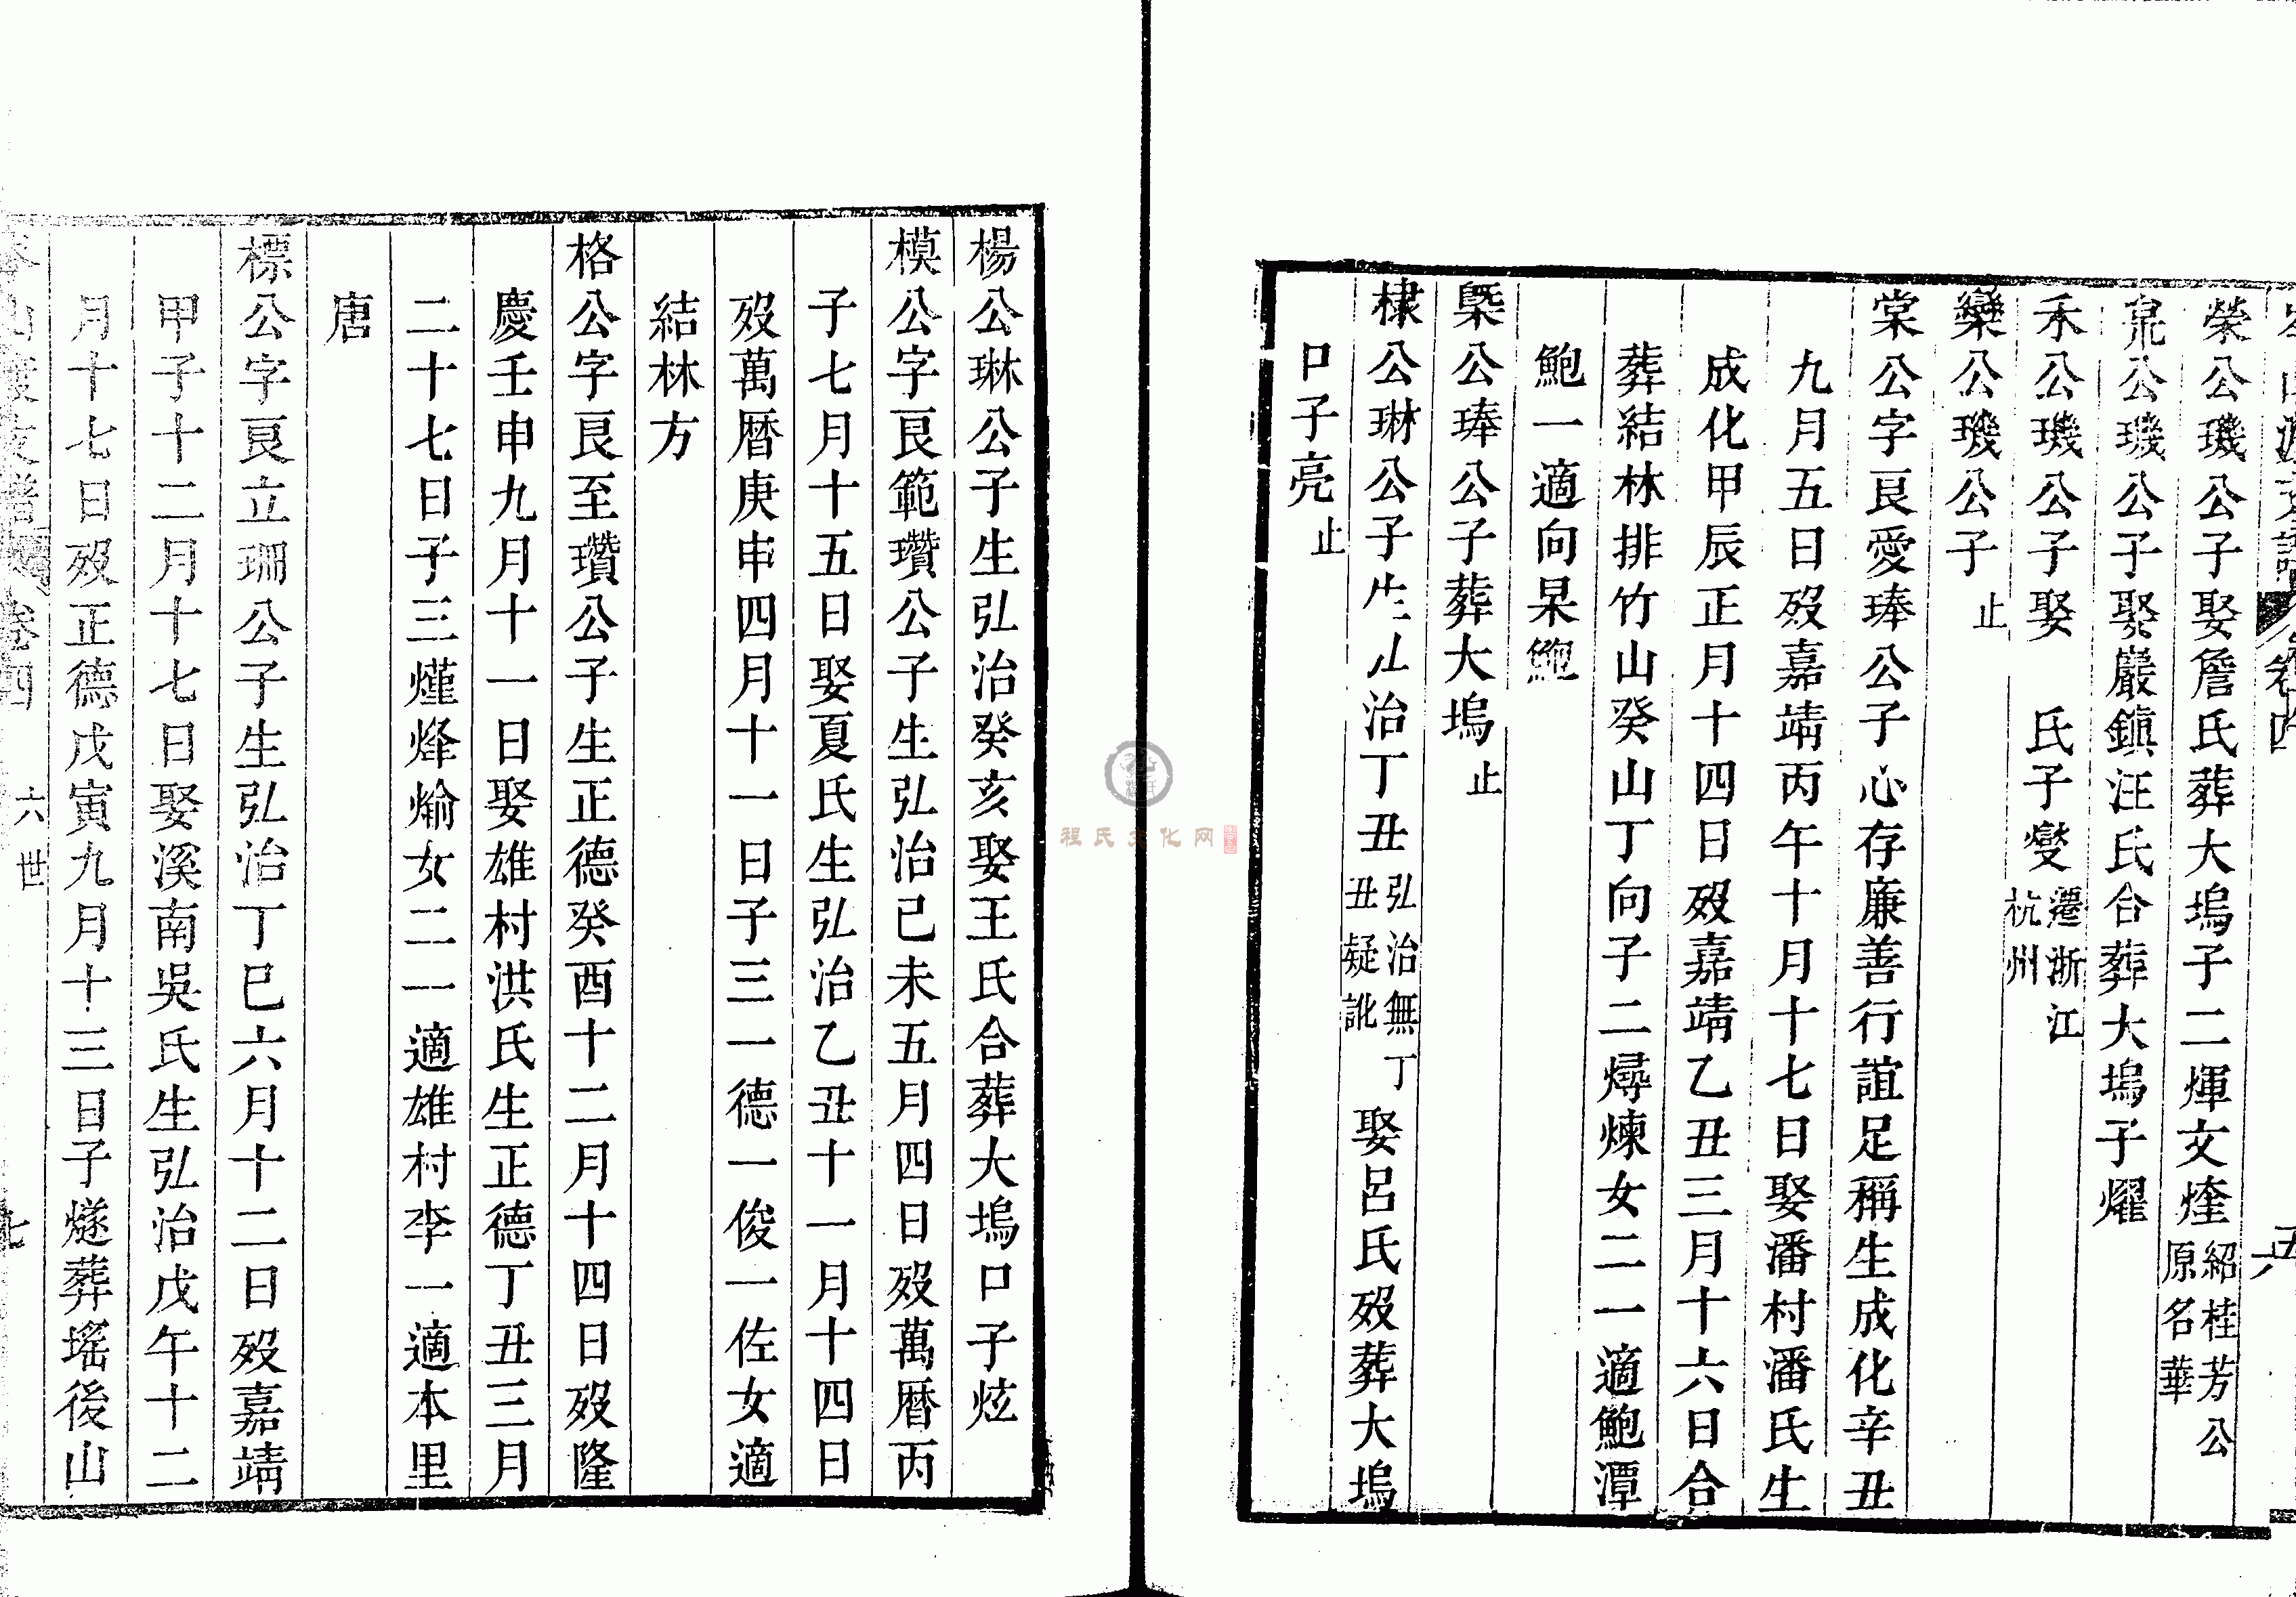 山源支譜 卷四
榮公璣公子娶詹氏葬大塢子二煇文煃紹桂芳公原名華
公璣公子娶巖鎮汪氏合葬大塢子燿
禾公璣公子娶 氏子燮遷浙江杭州
欒公璣公子止
棠公字艮愛琫公子心存廉善行誼足稱生成化辛丑
九月五日歿嘉靖丙午十月十七日娶潘村潘氏生
成化甲辰正月十四日歿嘉靖乙丑三月十六日合
葬結林排竹山癸山丁向子二燖煉女二一適鮑潭
鮑一適向杲鮑
槩公琫公子葬大塢止
棣公琳公子生 治丁丑弘治無丁丑疑訛娶呂氏歿葬大塢
口子亮止
楊公琳公子生弘治癸亥娶王氏合葬大塢口子炫
模公字艮範瓚公子生弘治己未五月四日歿萬曆丙
子七月十五日娶夏氏生弘治乙丑十一月十四日
歿萬曆庚申四月十一日子三一德一俊一佐女適
結林方
格公字艮至瓚公子生正德癸酉十二月十四日歿隆
慶壬申九月十一日娶雄村洪氏生正德丁丑三月
二十七日子三爜烽烠女二一適雄村李一適本里
唐
標公字艮立珊公子生弘治丁巳六月十二日歿嘉靖
甲子十二月十七日娶溪南吳氏生弘治戊午十二
月十七日歿正德戊寅九月十三日子燧葬瑤後山
山渡支譜 卷四 六世 七
程氏文化网